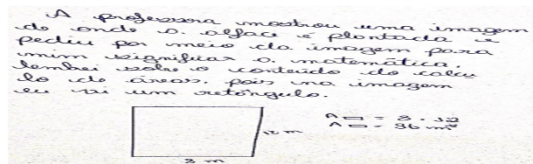 A professora mostrou uma imagem
de onde o alface é plantada e
pediu por meio da imagem para
mim significar a matemática.
lembrei sobre o conteúdo do calcu
lo de áreas, pois na imagem
eu vi um retângulo.
A▭ = 3 . 12
A▭ = 36 m²
12 m
3 m